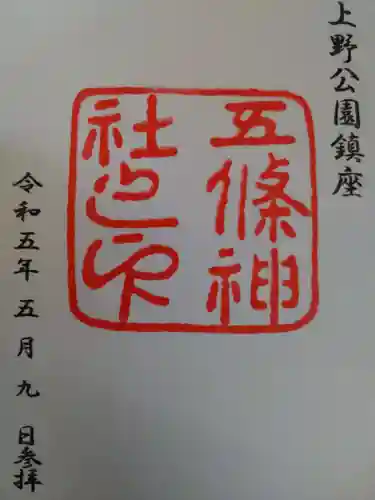 上野公園鎮座
五條神
社之印
令和五年五月九日参拝